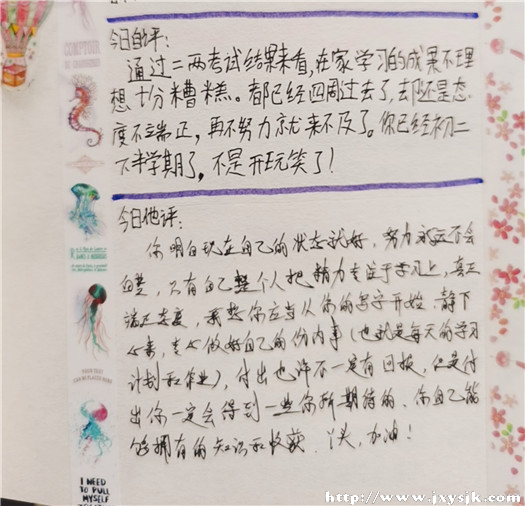 今日自评：
通过二两考试结果来看，在家学习的成果不理
想十分糟糕。都已经四周过去了，却还是态
度不端正，再不努力就来不及了。你已经初二
下半学期了，不是开玩笑了！
今日他评：
你明白现在自己的状态就好，努力永远不会
白费，只有自己整个人把精力专注于学习上，真正
端正态度，我想你应当从你的写字开始，静下
心来，专心做好自己的份内事（也就是每天的学习
计划和作业），付出也许不一定有回报，但是付
出你一定会得到一些你所期待的、你自己能
够拥有的知识和收获. 丫头，加油！
I NEED
TO PULL
MYSELF
http://www.jxysjk.com